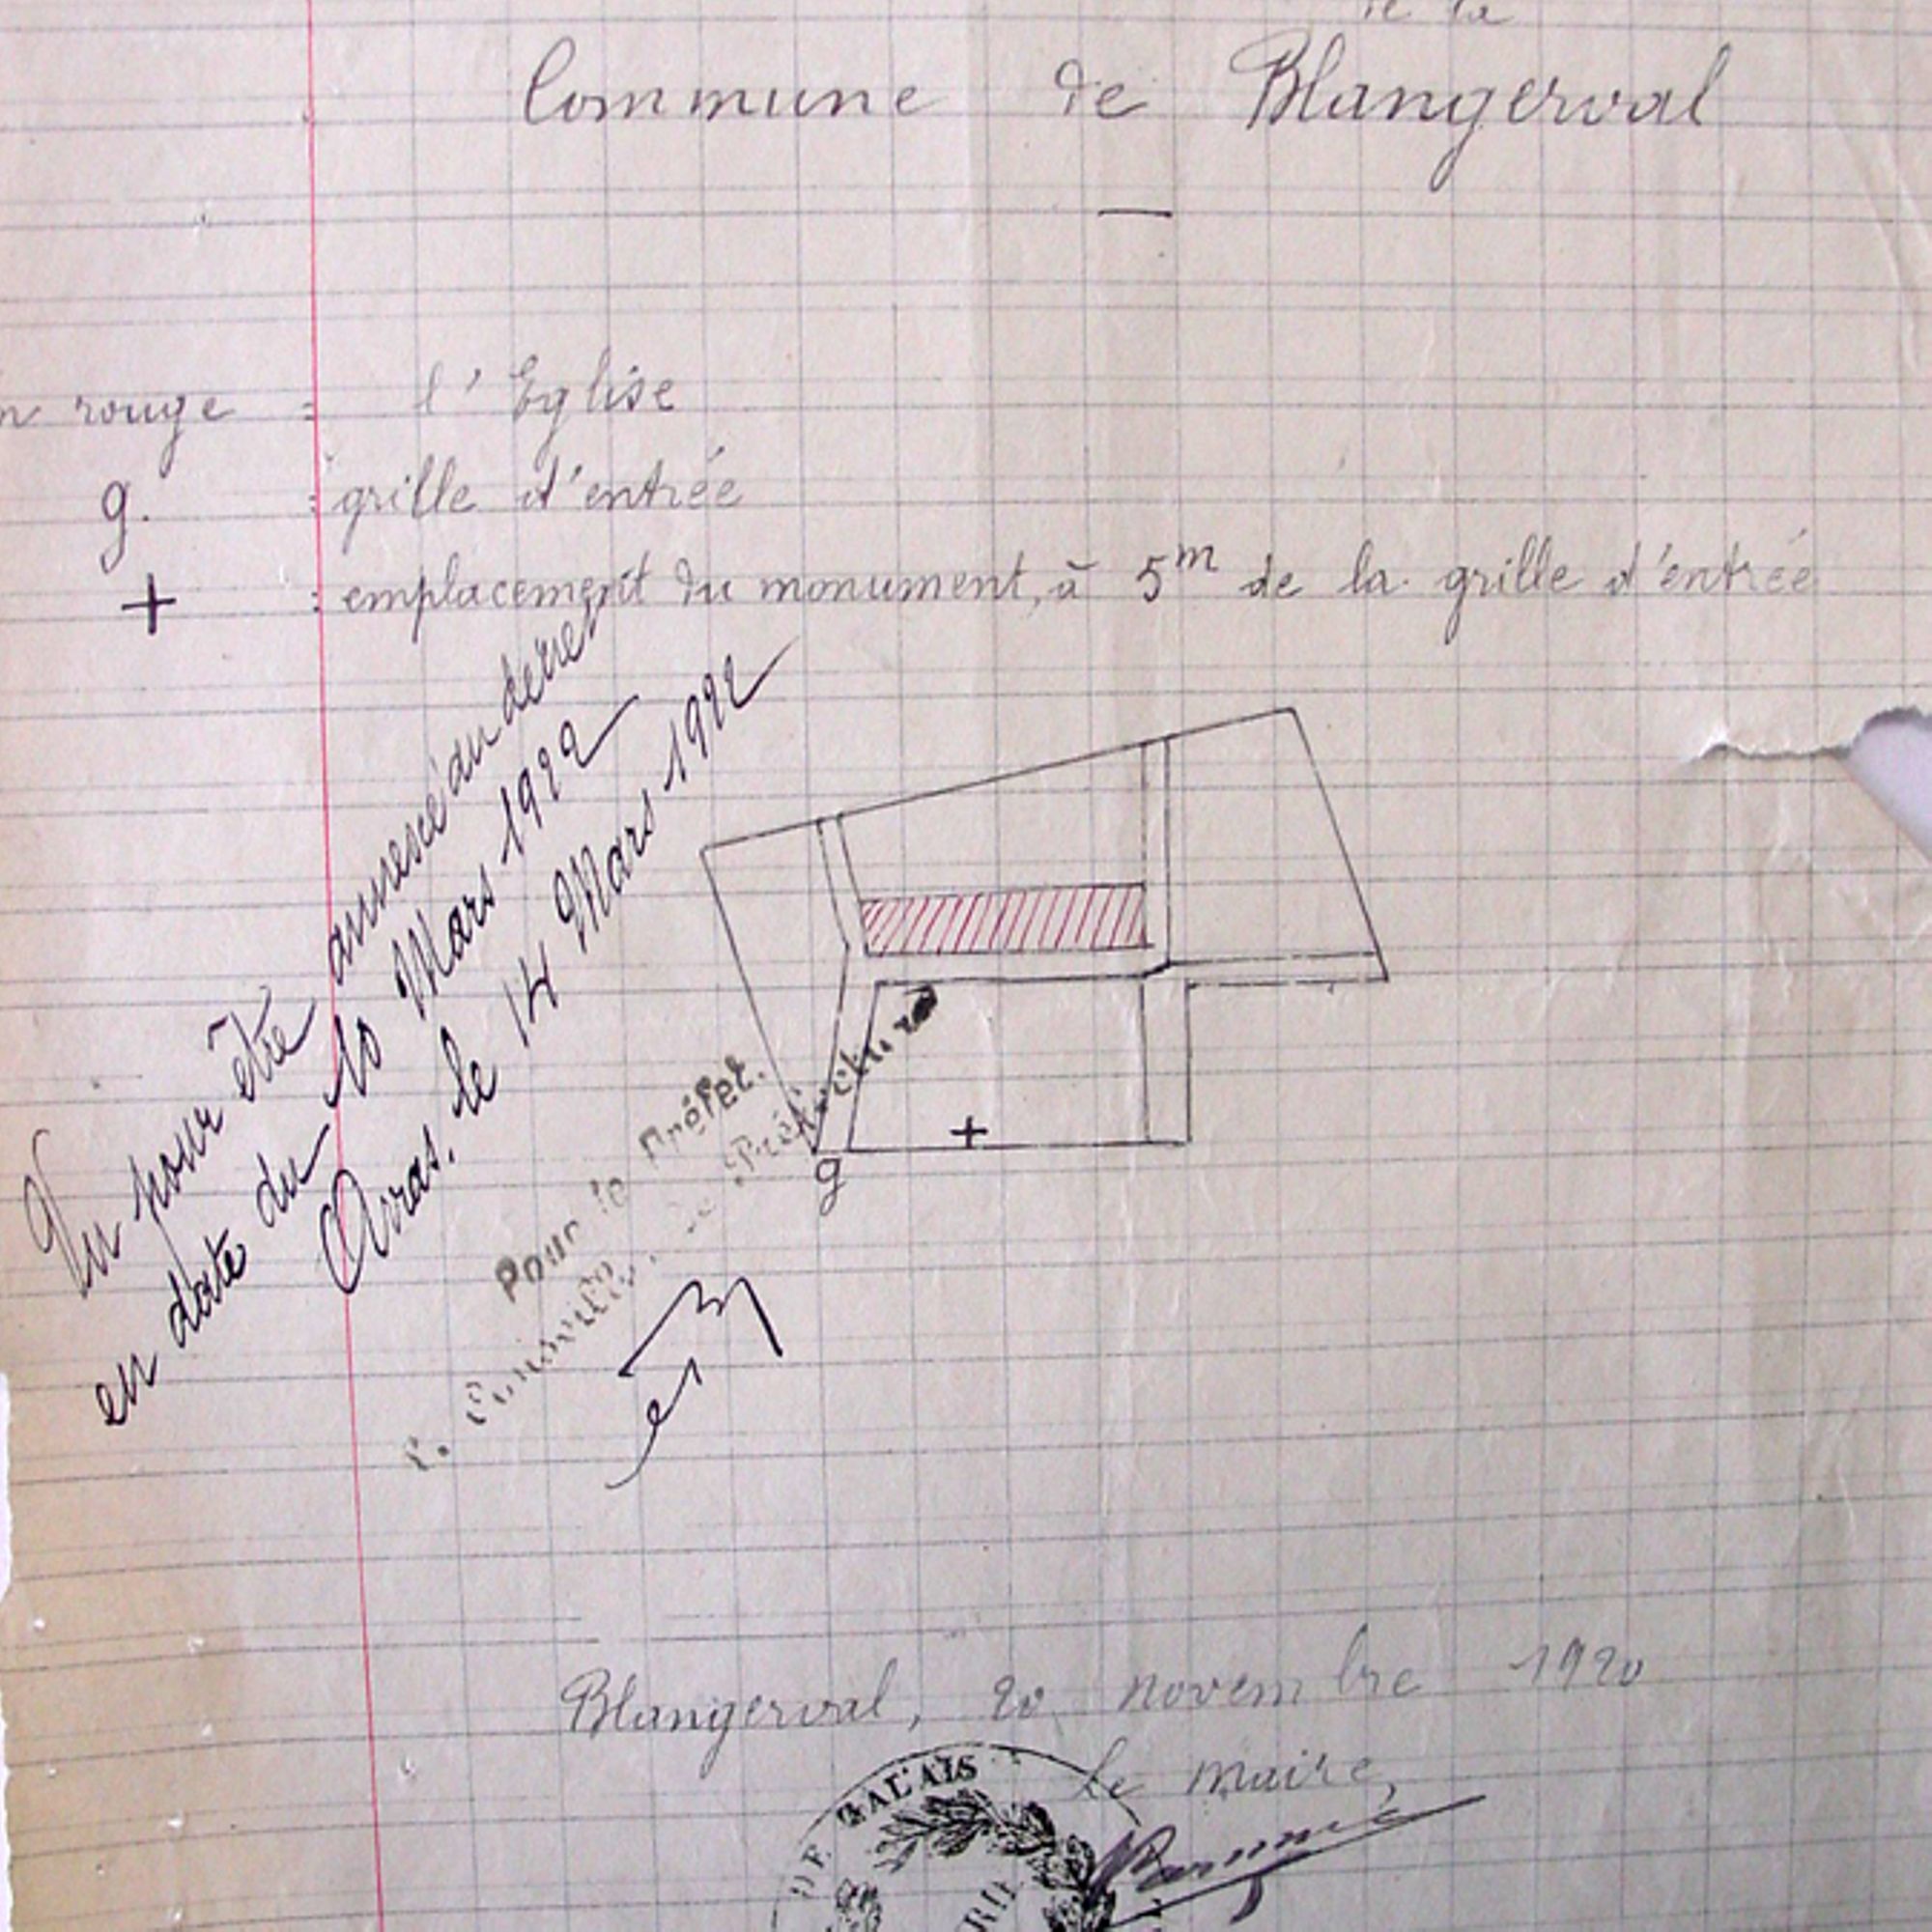 de la
Commune de Blangerval
rouge = l'Eglise
g. = grille d'entrée
+ : emplacement du monument, à 5m de la grille d'entrée
Vu pour être annexé au décret
en date du 10 Mars 1922
Arras, le 14 Mars 1922
Pour le Préfet.
de Préfecture
+
g
Blangerval, 20 novembre 1920
Le maire,
DE CALAIS